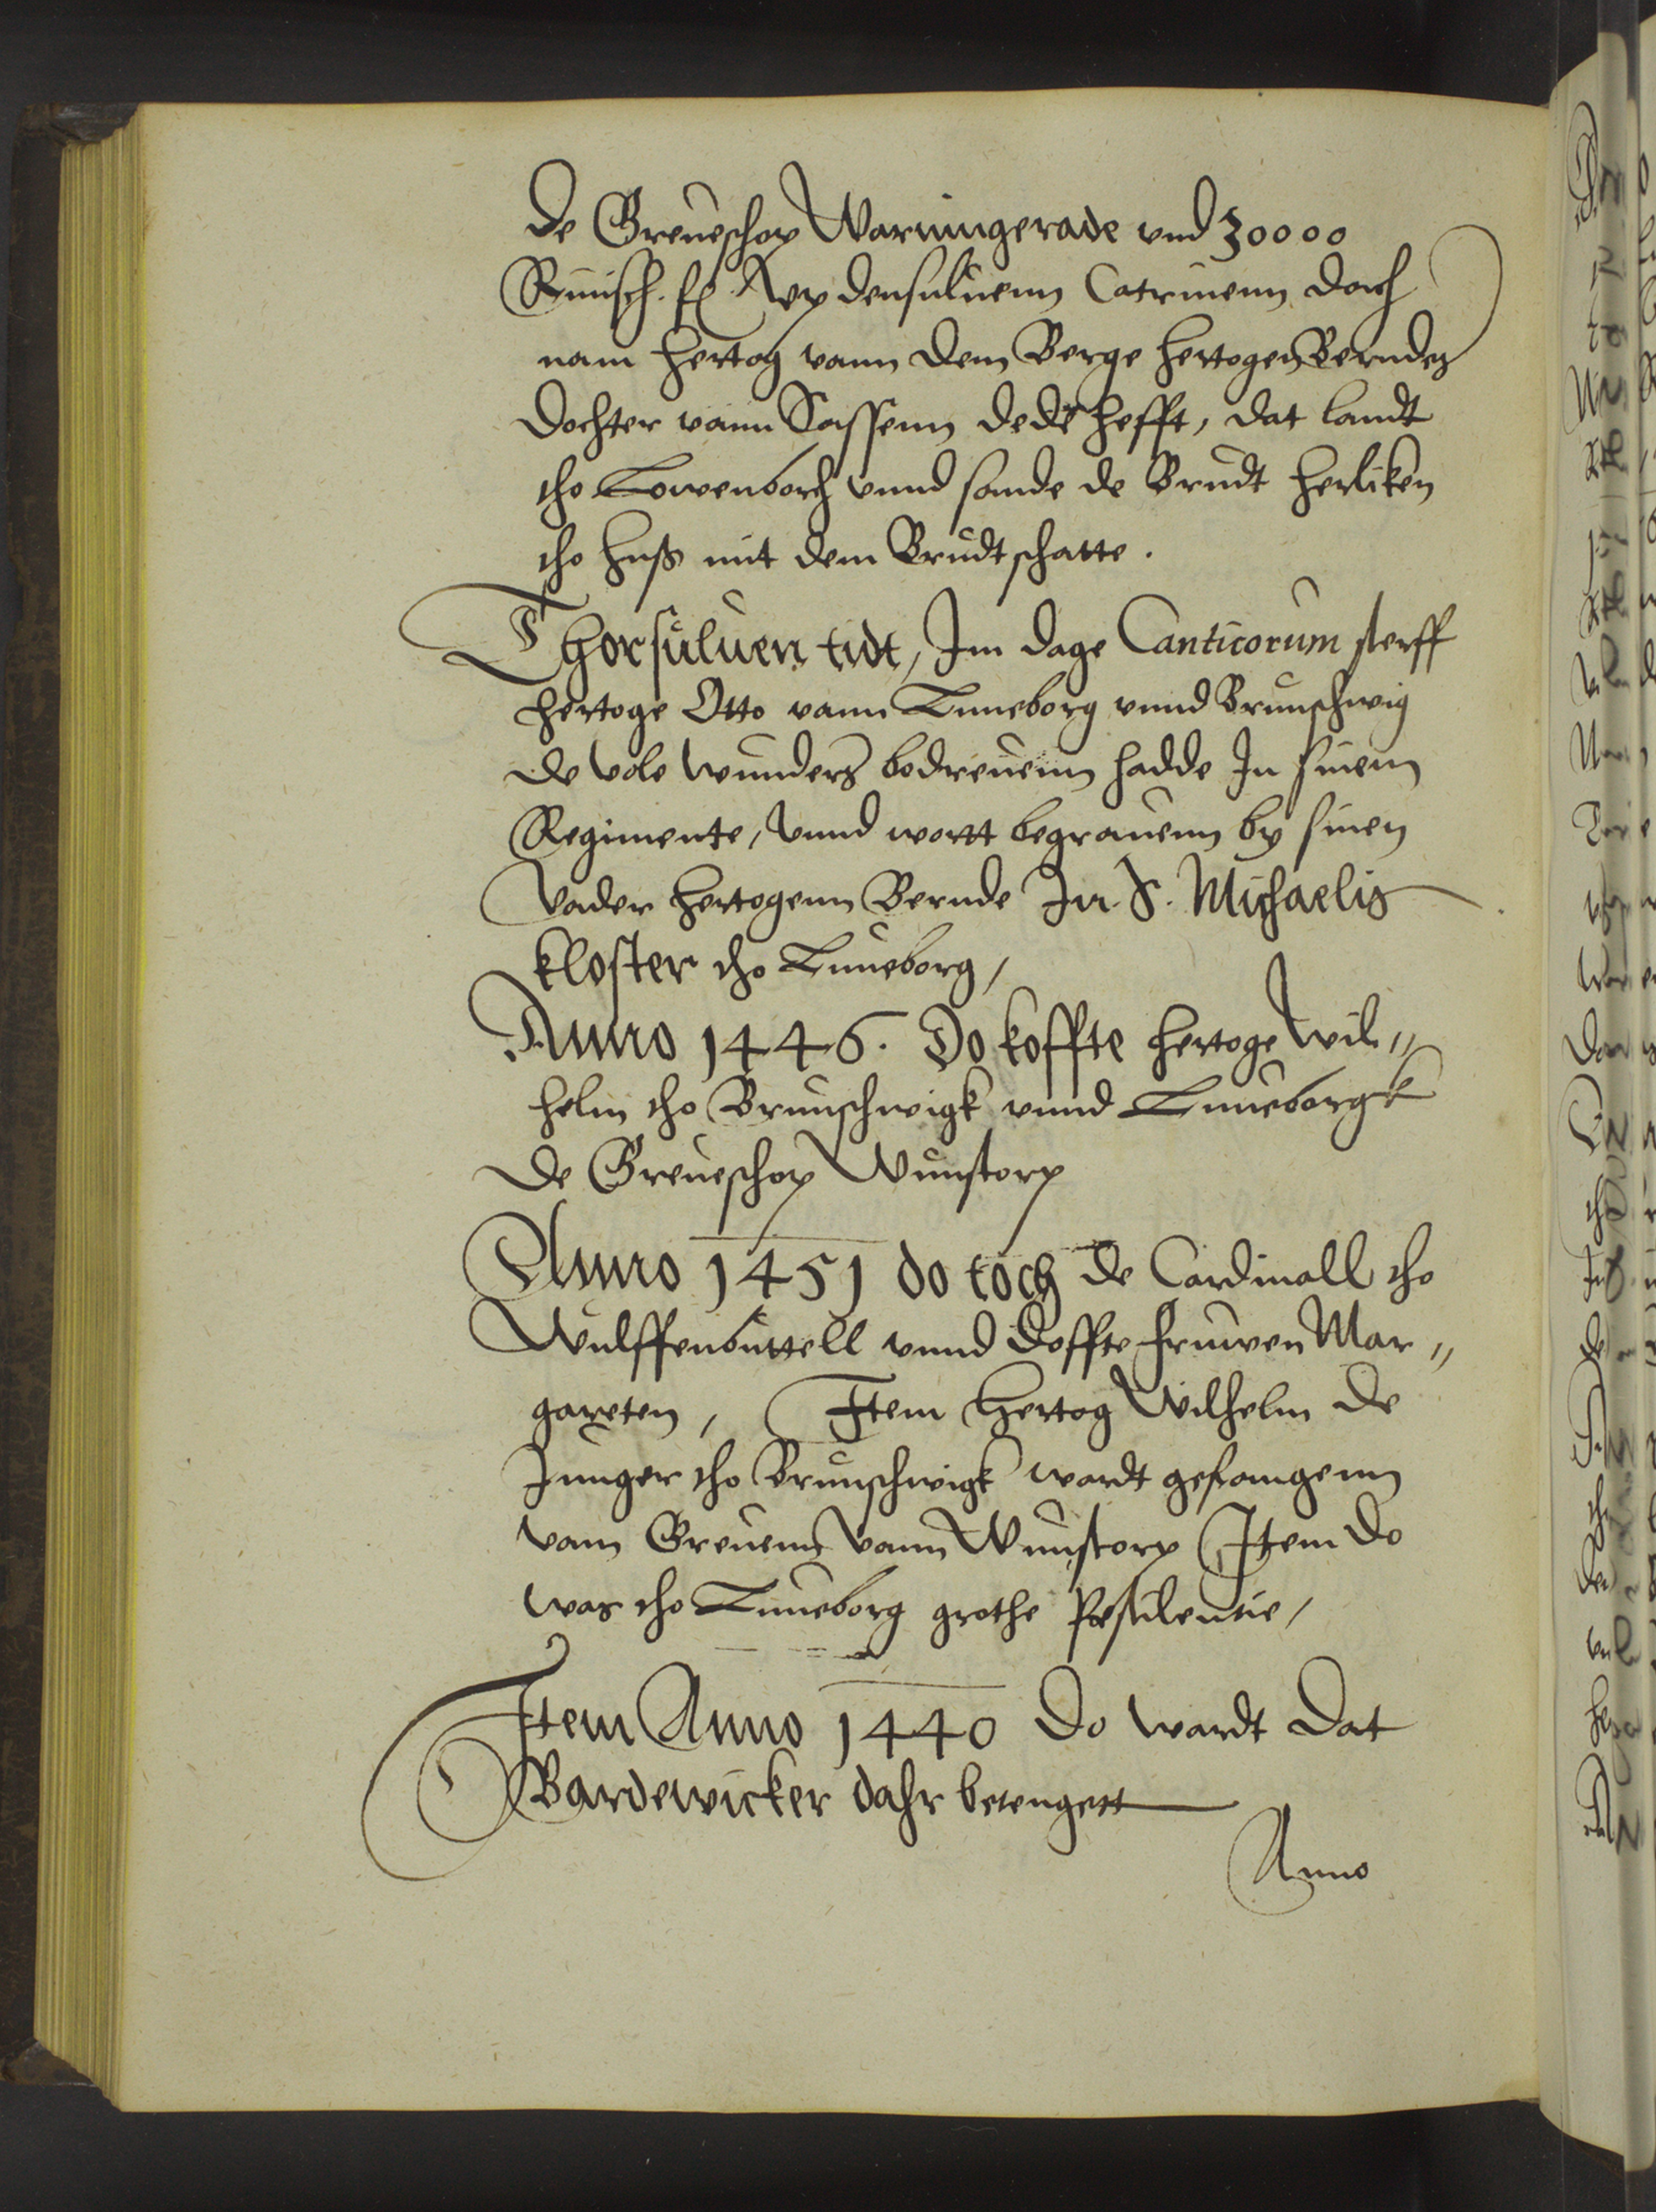 De Greueschop Warningerade vnd 30000
Rinisch. fl. Vp densuluenn Catrinenn dach
nam Hertog vann dem Berge Hertogen Berndes
dochter vann Sassenn dede hefft, dat landt
tho Lowenborch vnnd sande de Brudt herliken
tho huß mit dem Brudtschatte.
Thorsuluen tidt, Im dage Canticorum sterff
Hertoge Otto vann Luneborg vnnd Brunschwig
de vele wunders bedreuenn hadde In sinem
Regimente, vnnd wortt begrauenn by sinen
Vader Hertogenn Bernde In S. Michaelis
kloster tho Luneborg,
Anno 1446. Do koffte Hertoge Wil„
helm tho Brunschwigk vnnd Luneborgk
de Greueschop Wunstorp
Anno 1451 do toch de Cardinall tho
Wulffenbuttell vnnd doffte fruwen Mar„
gareten, Item Hertog Wilhelm de
Junger tho Brunschwigk wardt gefangenn
vam Greuenn vann Wunstorp Item do
was tho Luneborg grothe Pestilentie,
Item Anno 1440 do wardt dat
Bardewicker dahr betengett
Anno